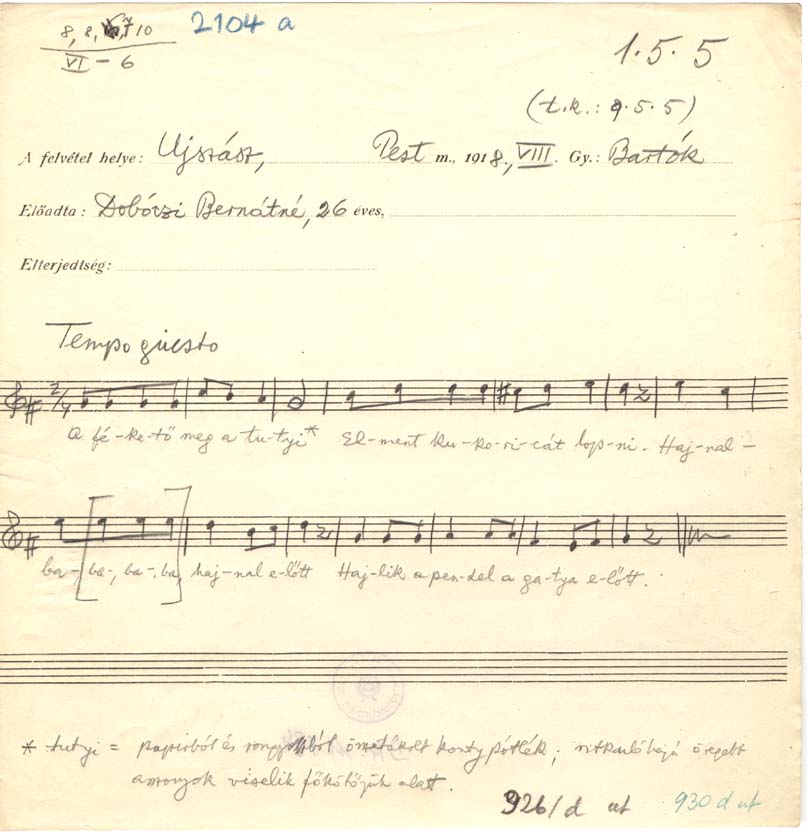 8, 8, 7, 10
VI – 6
2104 a
1.5.5
(t.k.: 9.5.5)
A felvétel helye: Ujszász, Pest m., 1918., VIII. Gy.: Bartók
Előadta: Dobóczi Bernátné, 26 éves,
Elterjedtség:
Tempo giusto
2/4
A fé-ke-tő meg a tu-tyi* El-ment ku-ko-ri-cát lop-ni. Haj-nal-
ba-, ba-, ba-, ba, haj-nal e-lőtt Haj-lik a pen-del a ga-tya e-lőtt.
* tutyi = papirból és rongyokból kontypótlék; ritkuló hajú öregebb
asszonyok viselik főkötőjük alatt.
926/d alatt 930 d alatt